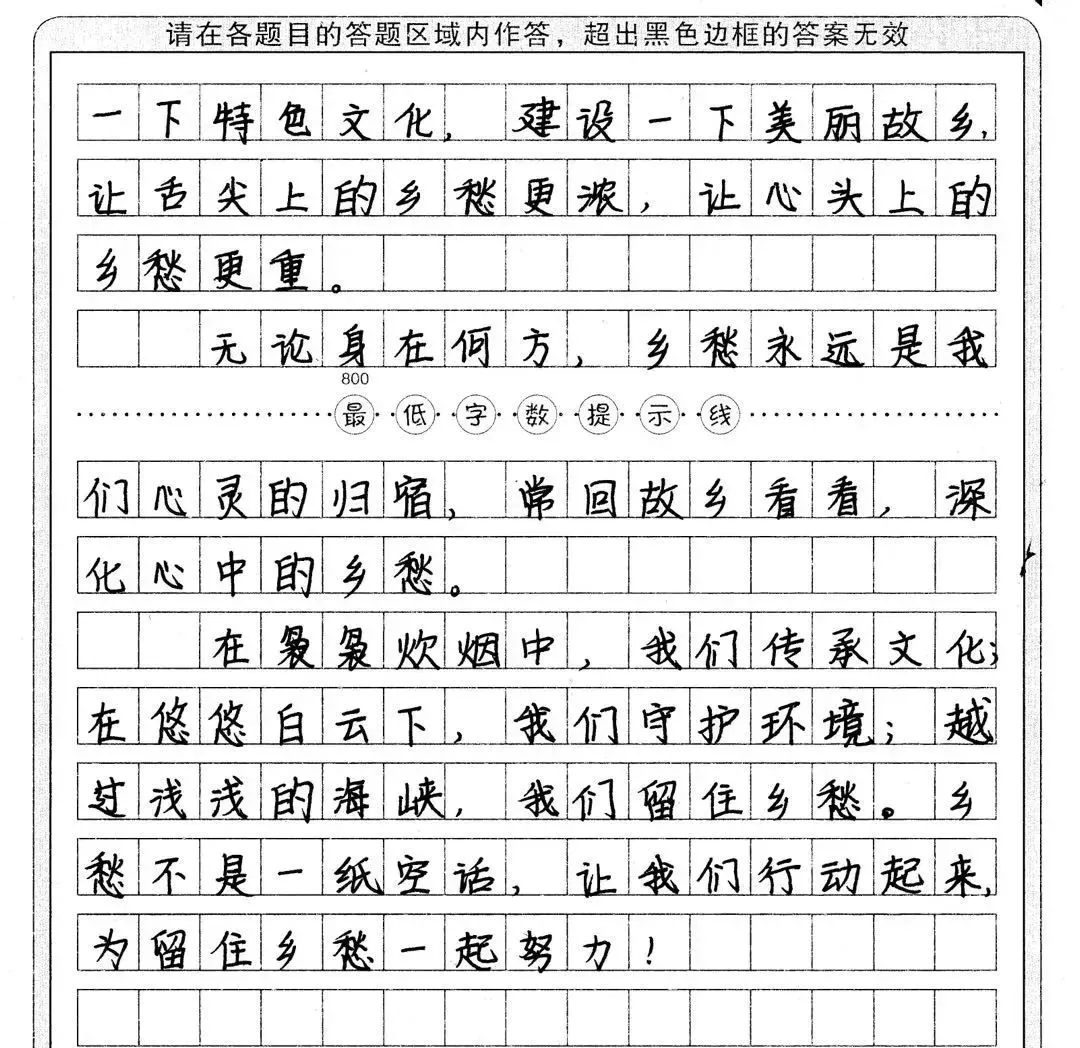 请在各题目的答题区域内作答，超出黑色边框的答案无效
一下特色文化，建设一下美丽故乡，
让舌尖上的乡愁更浓，让心头上的
乡愁更重。
无论身在何方，乡愁永远是我
800
最低字数提示线
们心灵的归宿，常回故乡看看，深
化心中的乡愁。
在袅袅炊烟中，我们传承文化；
在悠悠白云下，我们守护环境；越
过浅浅的海峡，我们留住乡愁。乡
愁不是一纸空话，让我们行动起来，
为留住乡愁一起努力！